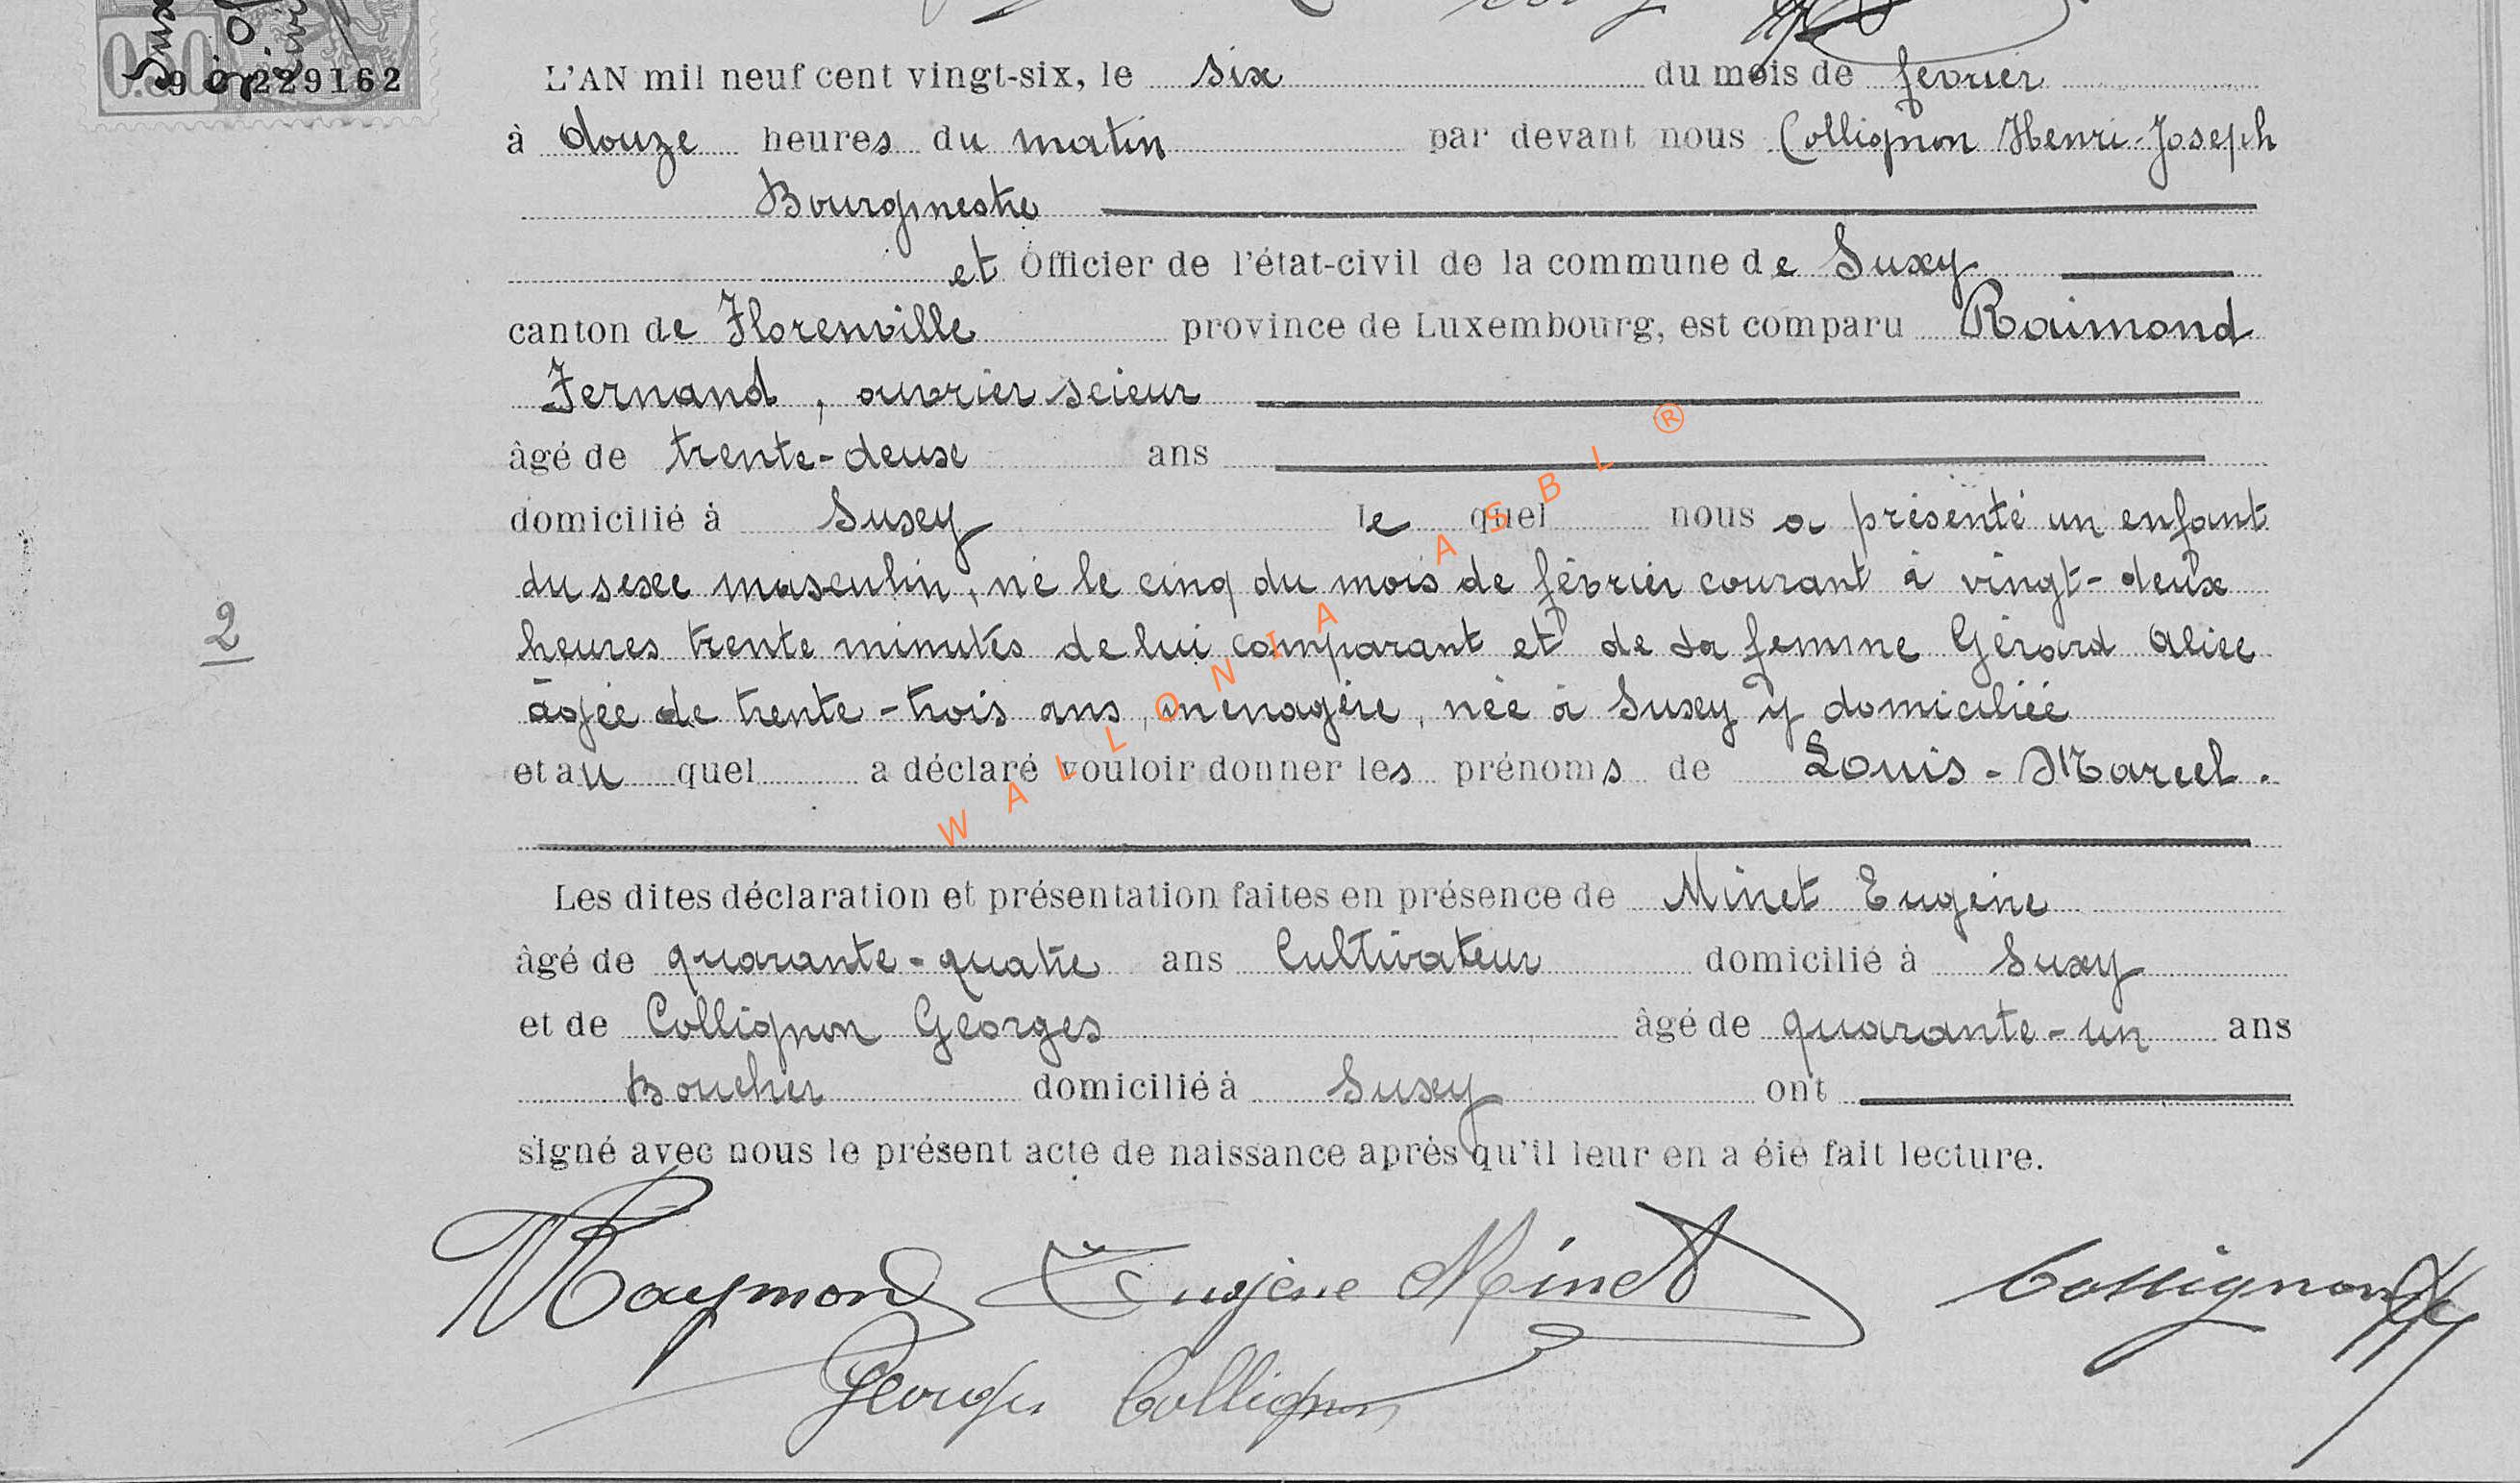 0.50
229162
L'AN mil neuf cent vingt-six, le six du mois de février
à douze heures du matin par devant nous Collignon Henri-Joseph
Bourgmestre
et Officier de l'état-civil de la commune de Suxy
canton de Florenville province de Luxembourg, est comparu Raimond
Fernand, ouvrier scieur
âgé de trente-deux ans
domicilié à Suxy lequel nous a présenté un enfant
du sexe masculin, né le cinq du mois de février courant à vingt-deux
heures trente minutes de lui comparant et de sa femme Gérard Alice
âgée de trente-trois ans, ménagère, née à Suxy y domiciliée
et au quel a déclaré vouloir donner les prénoms de Louis-Marcel.
2
WALLONIA ASBL ®
Les dites déclaration et présentation faites en présence de Minet Eugène
âgé de quarante-quatre ans Cultivateur domicilié à Suxy
et de Collignon Georges âgé de quarante-un ans
Boucher domicilié à Suxy ont
signé avec nous le présent acte de naissance après qu'il leur en a été fait lecture.
Raymond Eugène Minet Collignon
Georges Collignon